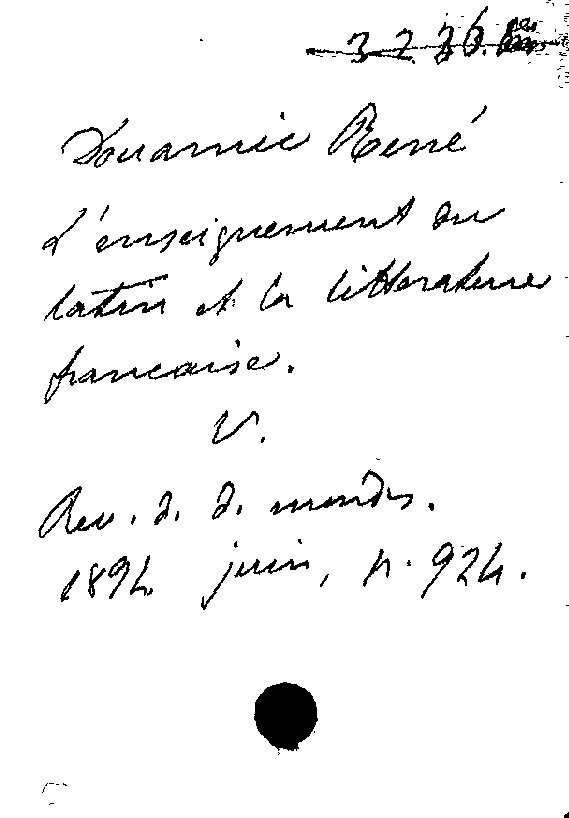 Doumic René
L'enseignement du
latin et la littérature
francaise.
V.
Rev. d. d. mondes.
1894 juin, p. 924.